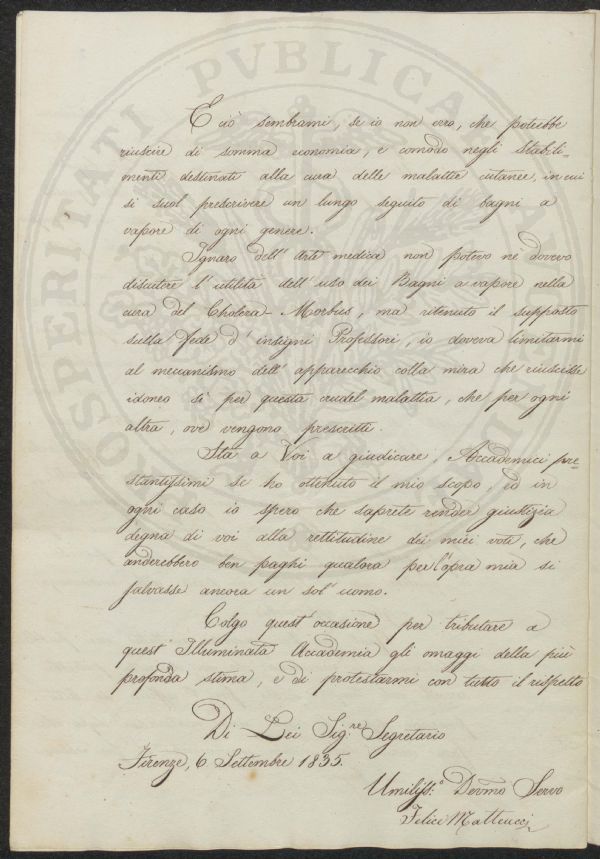 E ciò sembrami, se io non erro, che potrebbe
riuscire di somma economia, e comodo negli Stabili=
menti destinati alla cura delle malattie cutanee, in cui
si suol prescrivere un lungo seguito di bagni a
vapore di ogni genere.
Ignaro dell' Arte medica non potevo nè dovevo
discutere l'utilità dell'uso dei Bagni a vapore nella
cura del Cholera-Morbus, ma ritenuto il supposto
sulla fede d'insigni Professori, io doveva limitarmi
al meccanismo dell'apparecchio colla mira che riuscisse
idoneo sì per questa crudel malattia, che per ogni
altra, ove vengono prescritti.
Sta a Voi a giudicare, Accademici pre=
stantissimi se ho ottenuto il mio scopo, ed in
ogni caso io spero che saprete render giustizia
degna di voi alla rettitudine dei miei voti, che
anderebbero ben paghi qualora per l'opra mia si
salvasse ancora un sol' uomo.
Colgo quest' occasione per tributare a
quest' Illuminata Accademia gli omaggi della più
profonda stima, e di protestarmi con tutto il rispetto
Di Lei Sig.re Segretario
Firenze, 6 Settembre 1835.
Umiliss.o Devmo Servo
Felice Matteucci
PROSPERITATI PVBLICAE